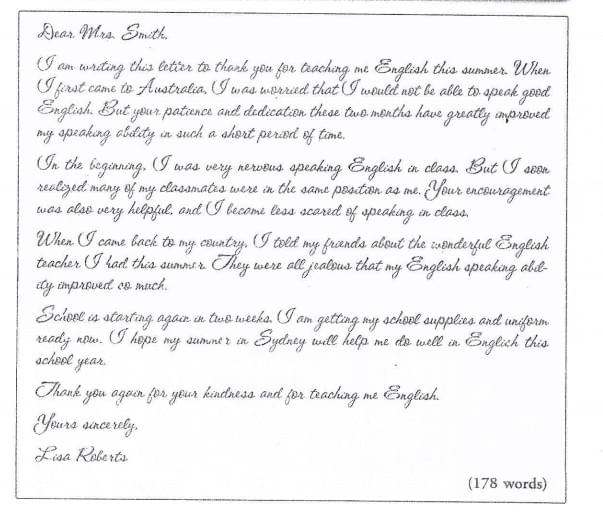 Dear Mrs. Smith,
I am writing this letter to thank you for teaching me English this summer. When
I first came to Australia, I was worried that I would not be able to speak good
English. But your patience and dedication these two months have greatly improved
my speaking ability in such a short period of time.
In the beginning, I was very nervous speaking English in class. But I soon
realized many of my classmates were in the same position as me. Your encouragement
was also very helpful, and I become less scared of speaking in class.
When I came back to my country, I told my friends about the wonderful English
teacher I had this summer. They were all jealous that my English speaking abil-
ity improved so much.
School is starting again in two weeks. I am getting my school supplies and uniform
ready now. I hope my summer in Sydney will help me do well in English this
school year.
Thank you again for your kindness and for teaching me English.
Yours sincerely,
Lisa Roberts
(178 words)